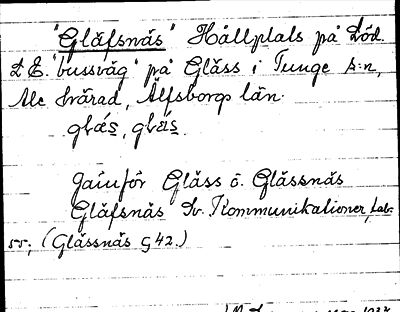 "Gläfsnäs" Hållplats på Löd.
L E. "bussväg" på Gläss i Tunge s:n,
Ale härad, Älfsborgs län.
glǽs, glǽs.
Jämför Gläss o. Glässnäs
Gläfsnäs Sv. Kommunikationer, tab.
55; (Glässnäs G 42.)